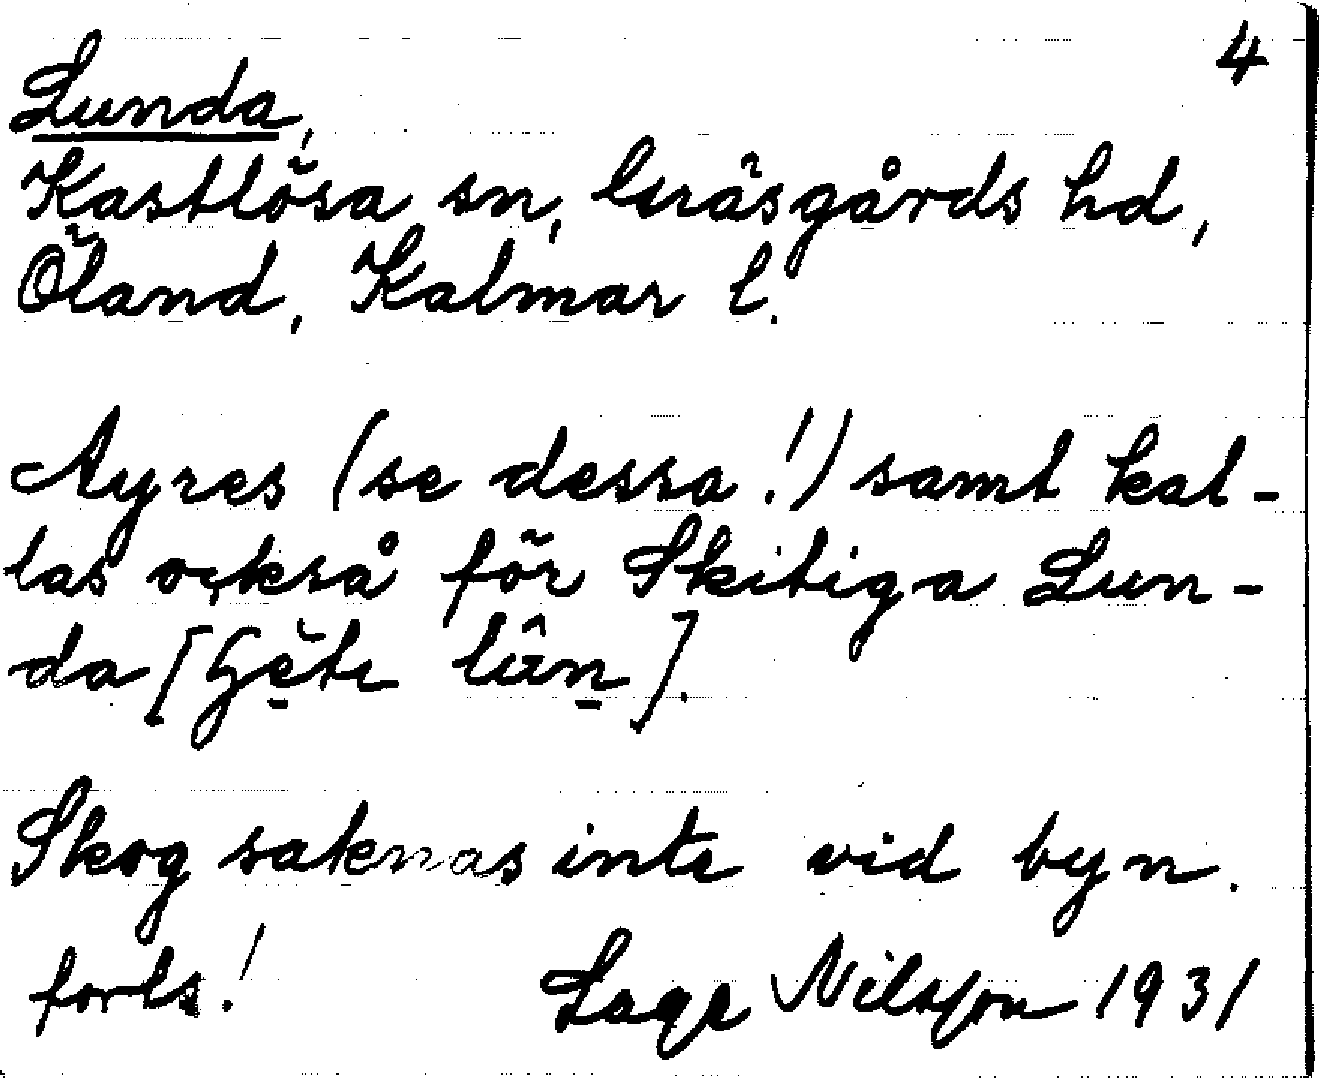 4
Lunda,
Kastlösa sn, Gräsgårds hd,
Öland, Kalmar l.
Ayres (se dessa!) samt kal-
las också för Skitiga Lun-
da
Skog saknas inte vid byn.
forts.! Lage Nilsson 1931